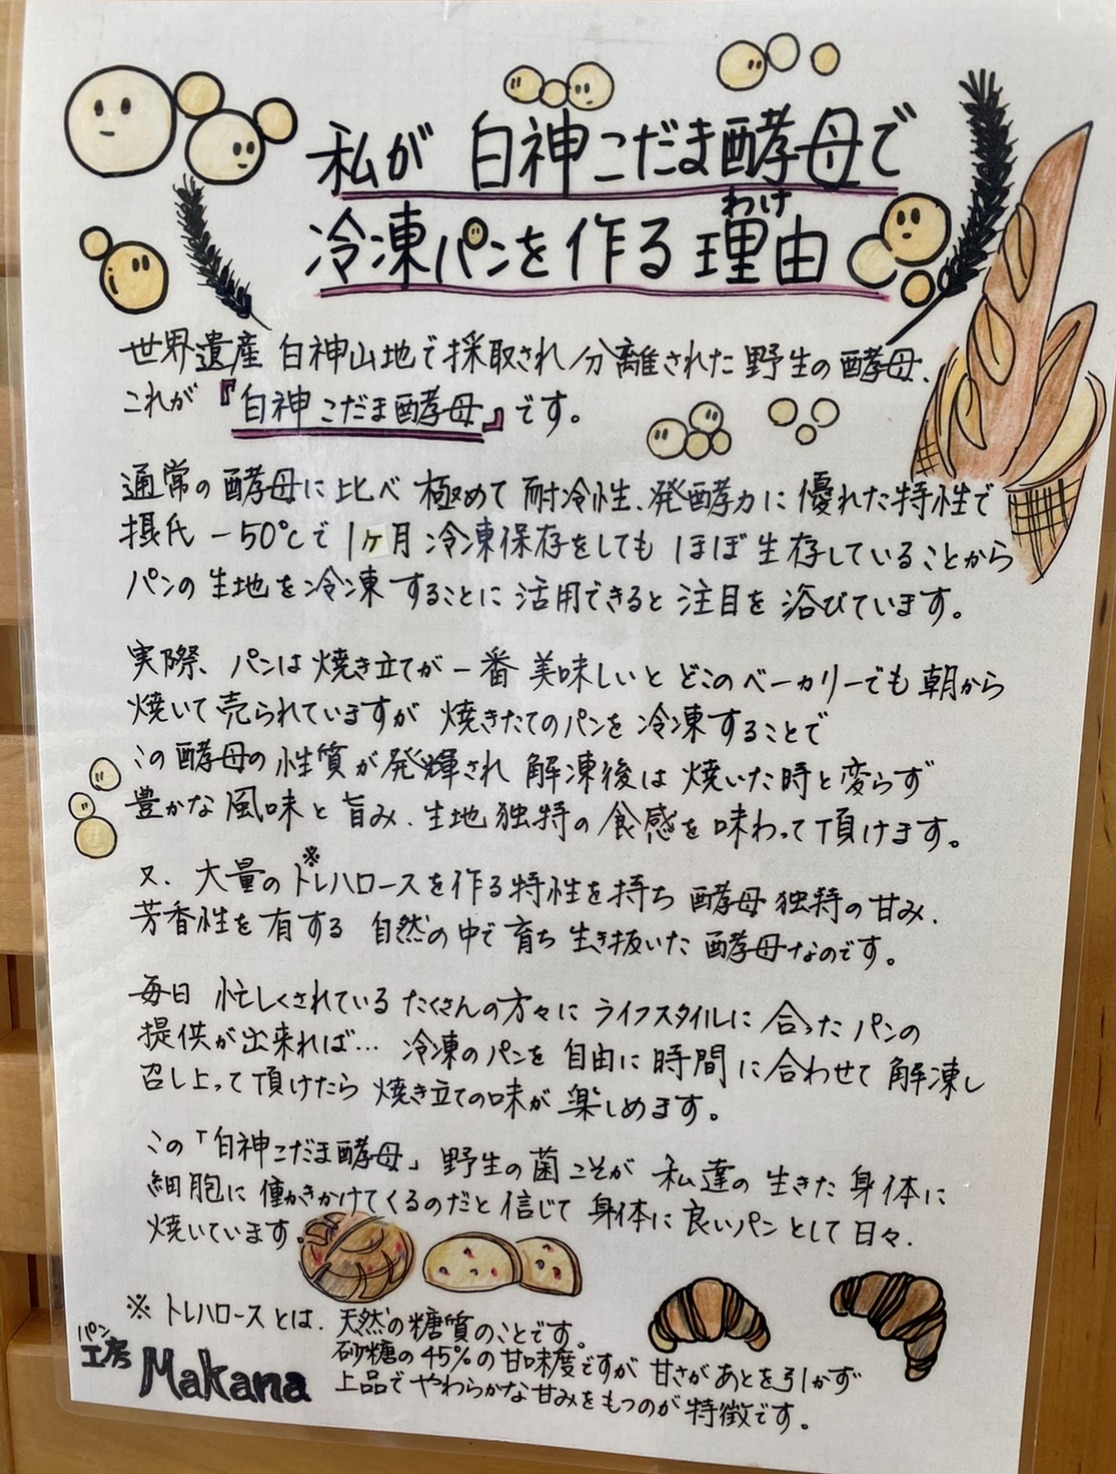 私が 白神こだま酵母で
わけ
冷凍パンを作る 理由
世界遺産 白神山地で採取され分離された野生の酵母、
これが『白神こだま酵母』です。
通常の酵母に比べ 極めて耐冷性、発酵力に優れた特性で
摂氏-50℃で1ヶ月冷凍保存をしても ほぼ生存していることから
パンの生地を冷凍することに活用できると注目を浴びています。
実際、パンは焼き立てが一番美味しいと どこのベーカリーでも朝から
焼いて売られていますが 焼きたてのパンを冷凍することで
この酵母の性質が発揮され 解凍後は焼いた時と変らず
豊かな風味と旨み、生地独特の食感を味わって頂けます。
※
又、大量のトレハロースを作る特性を持ち 酵母独特の甘み、
芳香性を有する 自然の中で育ち生き抜いた酵母なのです。
毎日 忙しくされているたくさんの方々に ライフスタイルに合ったパンの
提供が出来れば… 冷凍のパンを自由に時間に合わせて解凍し
召し上って頂けたら 焼き立ての味が楽しめます。
この「白神こだま酵母」野生の菌こそが 私達の生きた身体に
細胞に働きかけてくるのだと信じて 身体に良いパンとして日々、
焼いています。
※ トレハロースとは、天然の糖質のことです。
砂糖の45%の甘味度ですが 甘さがあとを引かず
上品でやわらかな甘みをもつのが特徴です。
パン
工房 Makana